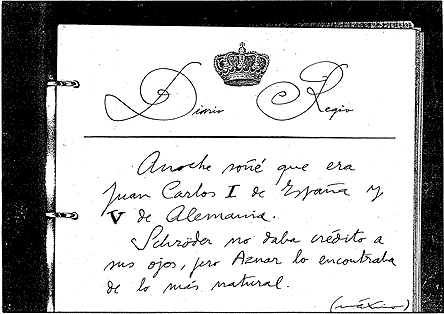 Diario Regio
Anoche soñé que era
Juan Carlos I de España y
V de Alemania.
Schröder no daba crédito a
sus ojos, pero Aznar lo encontraba
de lo más natural.
(máximo)